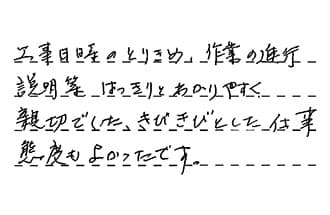 工事日時のとりきめ、作業の進行
説明等 はっきりとわかりやすく
親切でした、きびきびとした仕事
態度もよかったです。